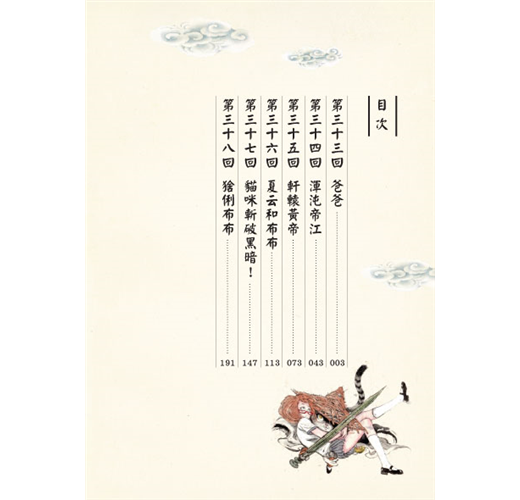 目次
第三十三回 爸爸 003
第三十四回 渾沌帝江 043
第三十五回 軒轅黃帝 073
第三十六回 夏云和布布 113
第三十七回 貓咪斬破黑暗！ 147
第三十八回 猞猁布布 191